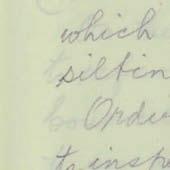 which
siltin
Ordi
to insp